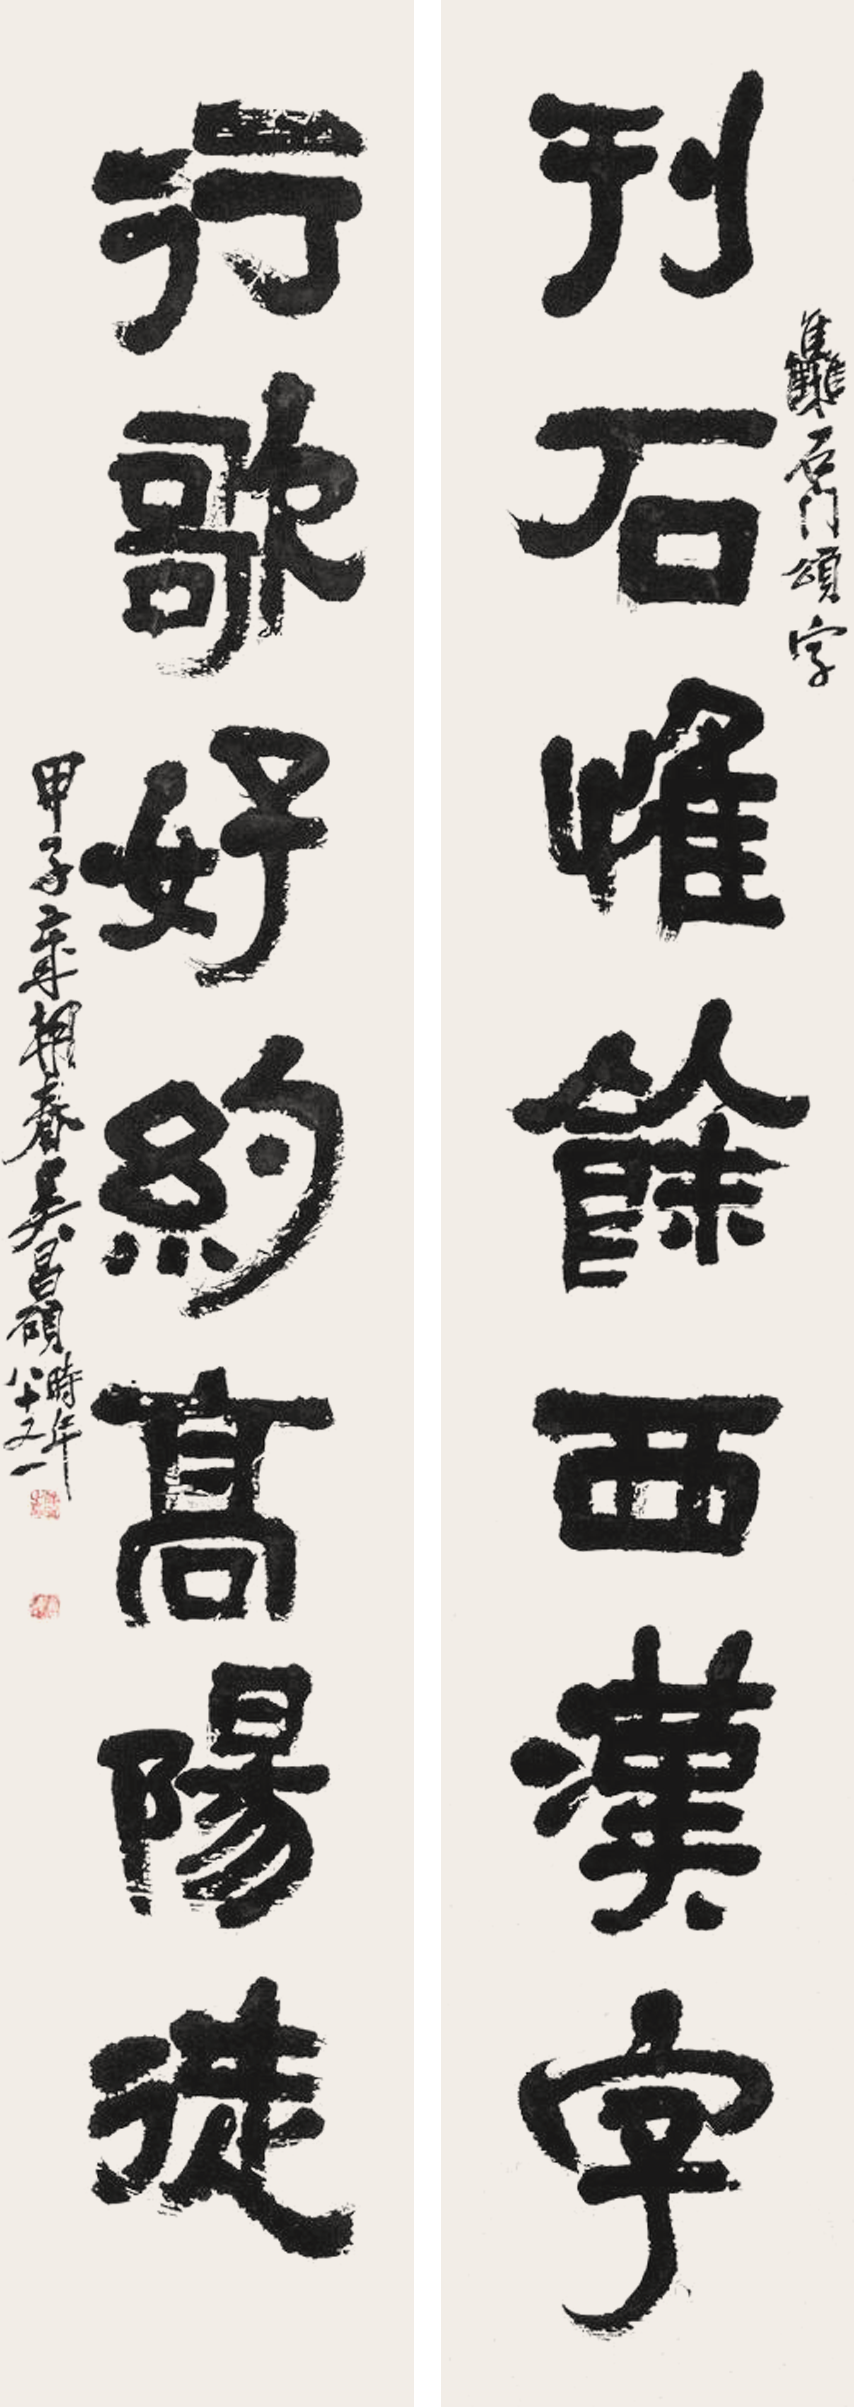 集石門頌字
刊石惟餘西漢字
行歌好約高陽徒
甲子歲朝春吳昌碩
時年八十又一